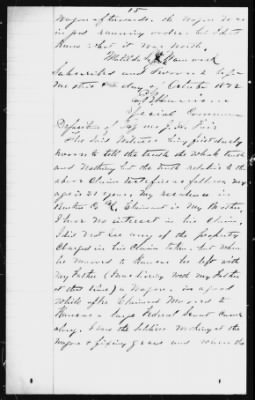 15
Wagon afterwards. the Wagon was
in good running order but I dont
know what it was worth.
Matilda Hancock
Subscribed and Sworn to before
me this day of October 1872
Special Commr
Deposition of
The said Witness being first duly
sworn to tell the truth the whole truth
and Nothing but the truth relative to the
above Claim testifies as follows my
age is 21 years, my residence is
Benton Co Claimant is my Brother,
I have no interest in his Claim.
I did not see any of the property
Charged in his Claim taken. but when
he moved to Kansas he left with
my Father (I was living with my Father
at this time) a Wagon. in a good
while after Claimant Moved to
Kansas a large Federal Scout Came
along. I saw the Soldiers working at the
Wagon & fixing gears and